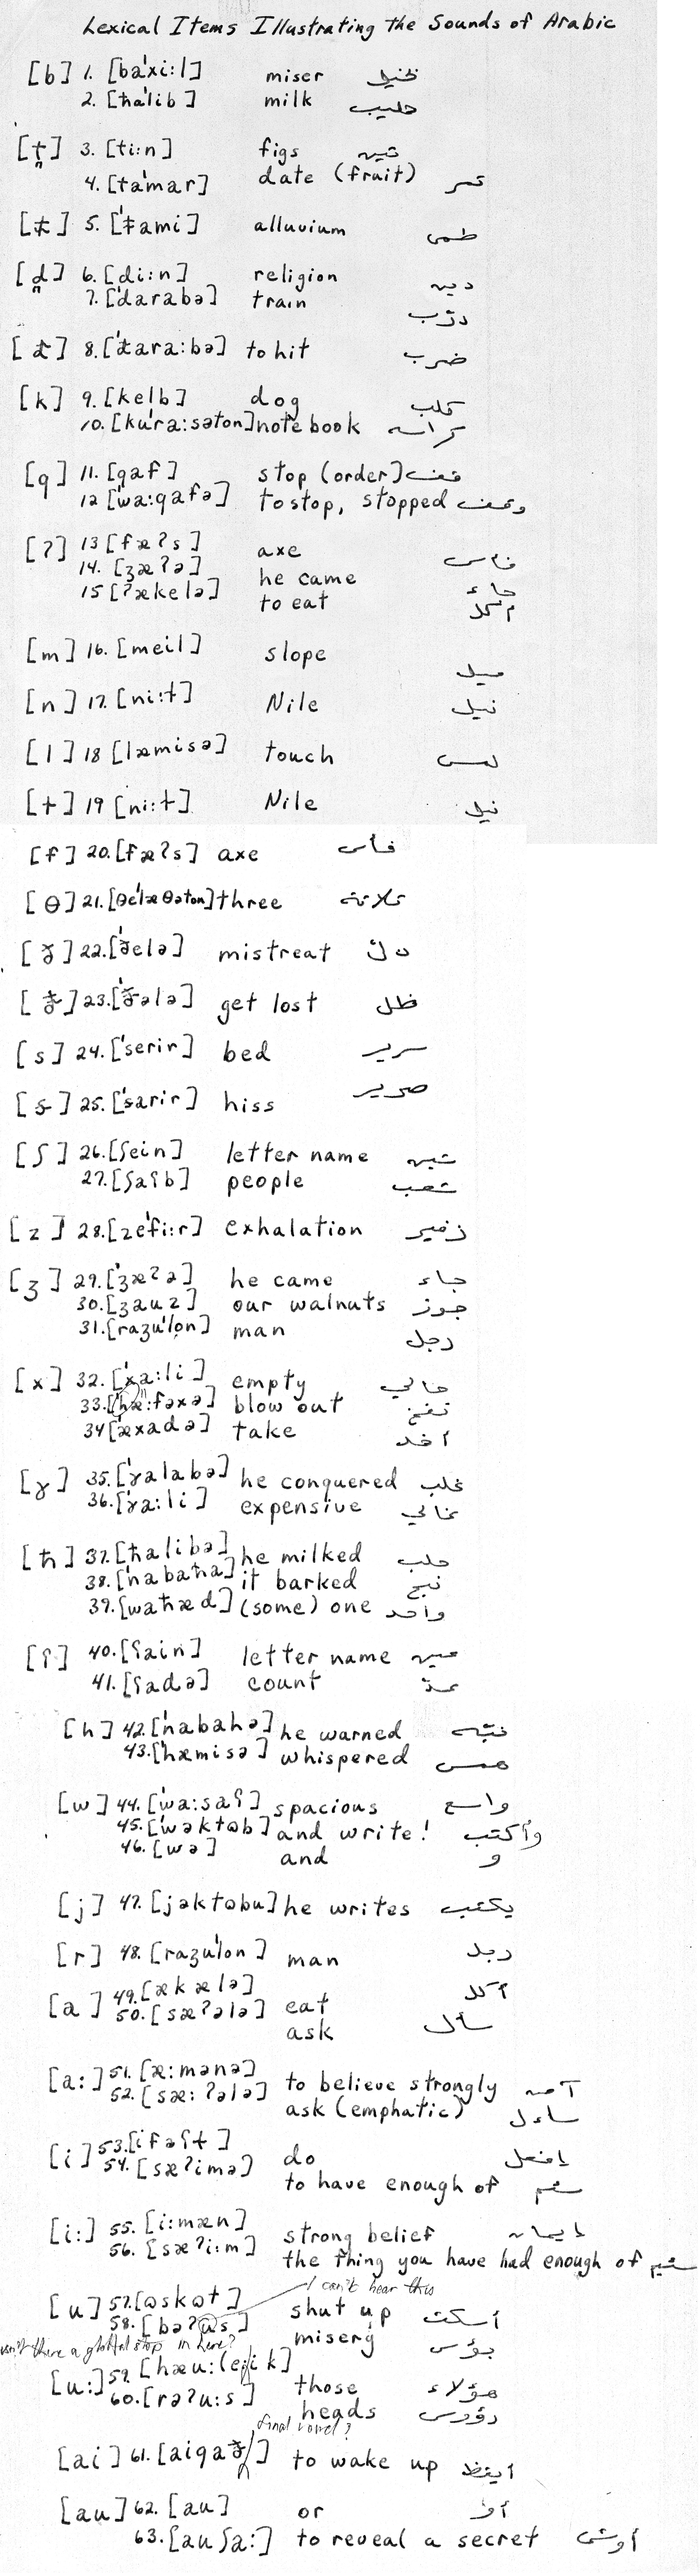 Lexical Items Illustrating the Sounds of Arabic
[b] 1. [ba'xi:l] miser بخيل
2. [ħa'lib] milk حليب
[t̪] 3. [ti:n] figs تين
4. [ta'mar] date (fruit) تمر
[ŧ] 5. ['ŧami] alluvium طمى
[d̪] 6. [di:n] religion دين
7. ['darabə] train درّب
[đ] 8. ['đara:bə] to hit ضرب
[k] 9. [kelb] dog كلب
10. [ku'ra:səton] notebook كراسه
[q] 11. [qaf] stop (order) قف
12 ['wa:qafə] to stop, stopped وقف
[ʔ] 13 [fæʔs] axe فاس
14. [ʒæʔə] he came جاء
15 [ʔækelə] to eat أكل
[m] 16. [meil] slope ميل
[n] 17. [ni:ɫ] Nile نيل
[l] 18 [læmisə] touch لمس
[ɫ] 19 [ni:ɫ] Nile نيل
[f] 20. [fæʔs] axe فأس
[θ] 21. [θe'læθəton] three ثلاثة
[ð] 22. ['ðelə] mistreat ذلّ
[ð̵] 23. ['ð̵ələ] get lost ظل
[s] 24. ['serir] bed سرير
[s̵] 25. ['s̵arir] hiss صرير
[ʃ] 26. [ʃein] letter name شين
27. [ʃaʕb] people شعب
[z] 28. [ze'fi:r] exhalation زفير
[ʒ] 29. ['ʒæʔə] he came جاء
30. [ʒauz] our walnuts جوز
31. [raʒu'lon] man رجل
[x] 32. ['xa:li] empty خالي
33. blow out نفخ
34 ['æxadə] take أخد
[ɣ] 35. ['ɣalabə] he conquered غلب
36. ['ɣa:li] expensive غالي
[ħ] 37. ['ħalibə] he milked حلب
38. ['nabaħa] it barked نبح
39. [waħæd] (some) one واحد
[ʕ] 40. [ʕain] letter name عين
41. [ʕadə] count عدّ
[h] 42. ['nabahə] he warned نبّه
43. ['hæmisə] whispered همس
[w] 44. ['wa:saʕ] spacious واسع
45. ['wəktɷb] and write! وأكتب
46. [wə] and و
[j] 47. [jəktɷbu] he writes يكتب
[r] 48. [raʒu'lon] man رجل
[a] 49. [ækælə] eat أكل
50. [sæʔələ] ask سأل
[a:] 51. [æ:mənə] to believe strongly آمن
52. [sæ:ʔələ] ask (emphatic) ساءل
[i] 53. [ifəʕɫ] do إفعل
54. [sæʔimə] to have enough of سئم
[i:] 55. [i:mæn] strong belief إيمان
56. [sæʔi:m] the thing you have had enough of سئيم
I can't hear this
[u] 57. [ɷskɷt] shut up أسكت
58. [bəʔɷs] misery بؤس
isn't there a glottal stop in here?
[u:] 59. those هؤلاء
60. [rəʔu:s] heads رؤوس
final vowel?
[ai] 61. [aiqað̵] to wake up أيقظ
[au] 62. [au] or أو
63. [auʃa:] to reveal a secret أوشى